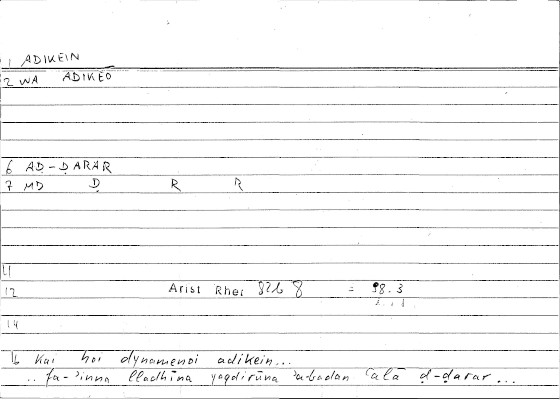 1 ADIKEIN
2 WA ADIKEO
6 AḌ-ḌARAR
7 MD Ḍ R R
11
12 Arist Rhet 82b 8 = 98.3
14
16 Kai hoi dynamenoi adikein...
.. fa-ʾinna lladhīna yaqdirūna ʾabadan ʿalā ḍ-ḍarar ...